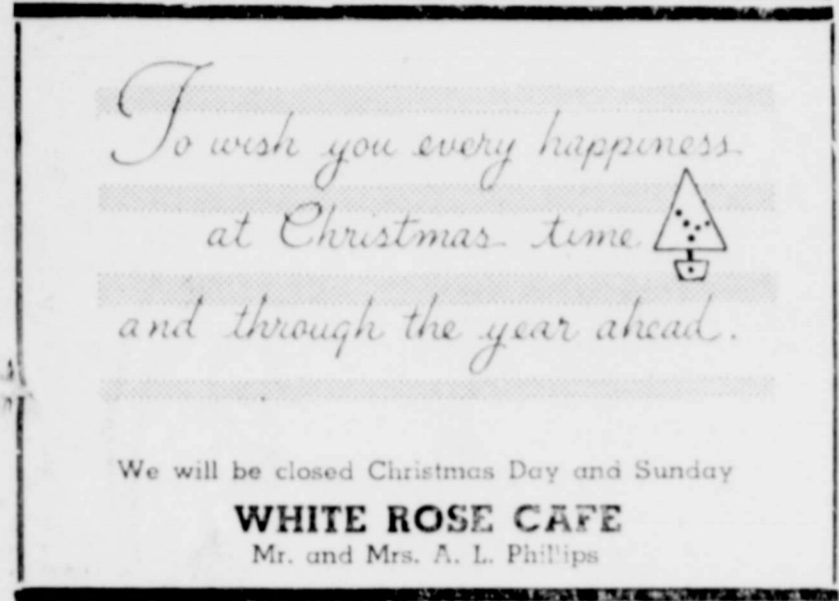 To wish you every happiness
at Christmas time
and through the year ahead.
We will be closed Christmas Day and Sunday
WHITE ROSE CAFE
Mr. and Mrs. A. L. Phillips